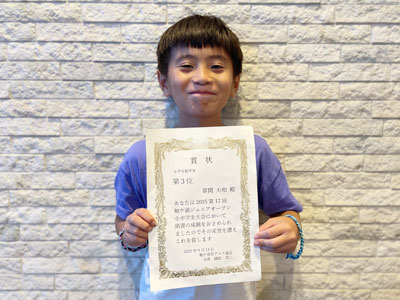 賞状
小学生低学年
第3位
草間 大和 殿
あなたは2025第17回
袖ケ浦ジュニアオープン
小中学生大会において
頭書の成績をおさめられ
ましたのでその栄誉を讃え
これを賞します
2025年9月14日